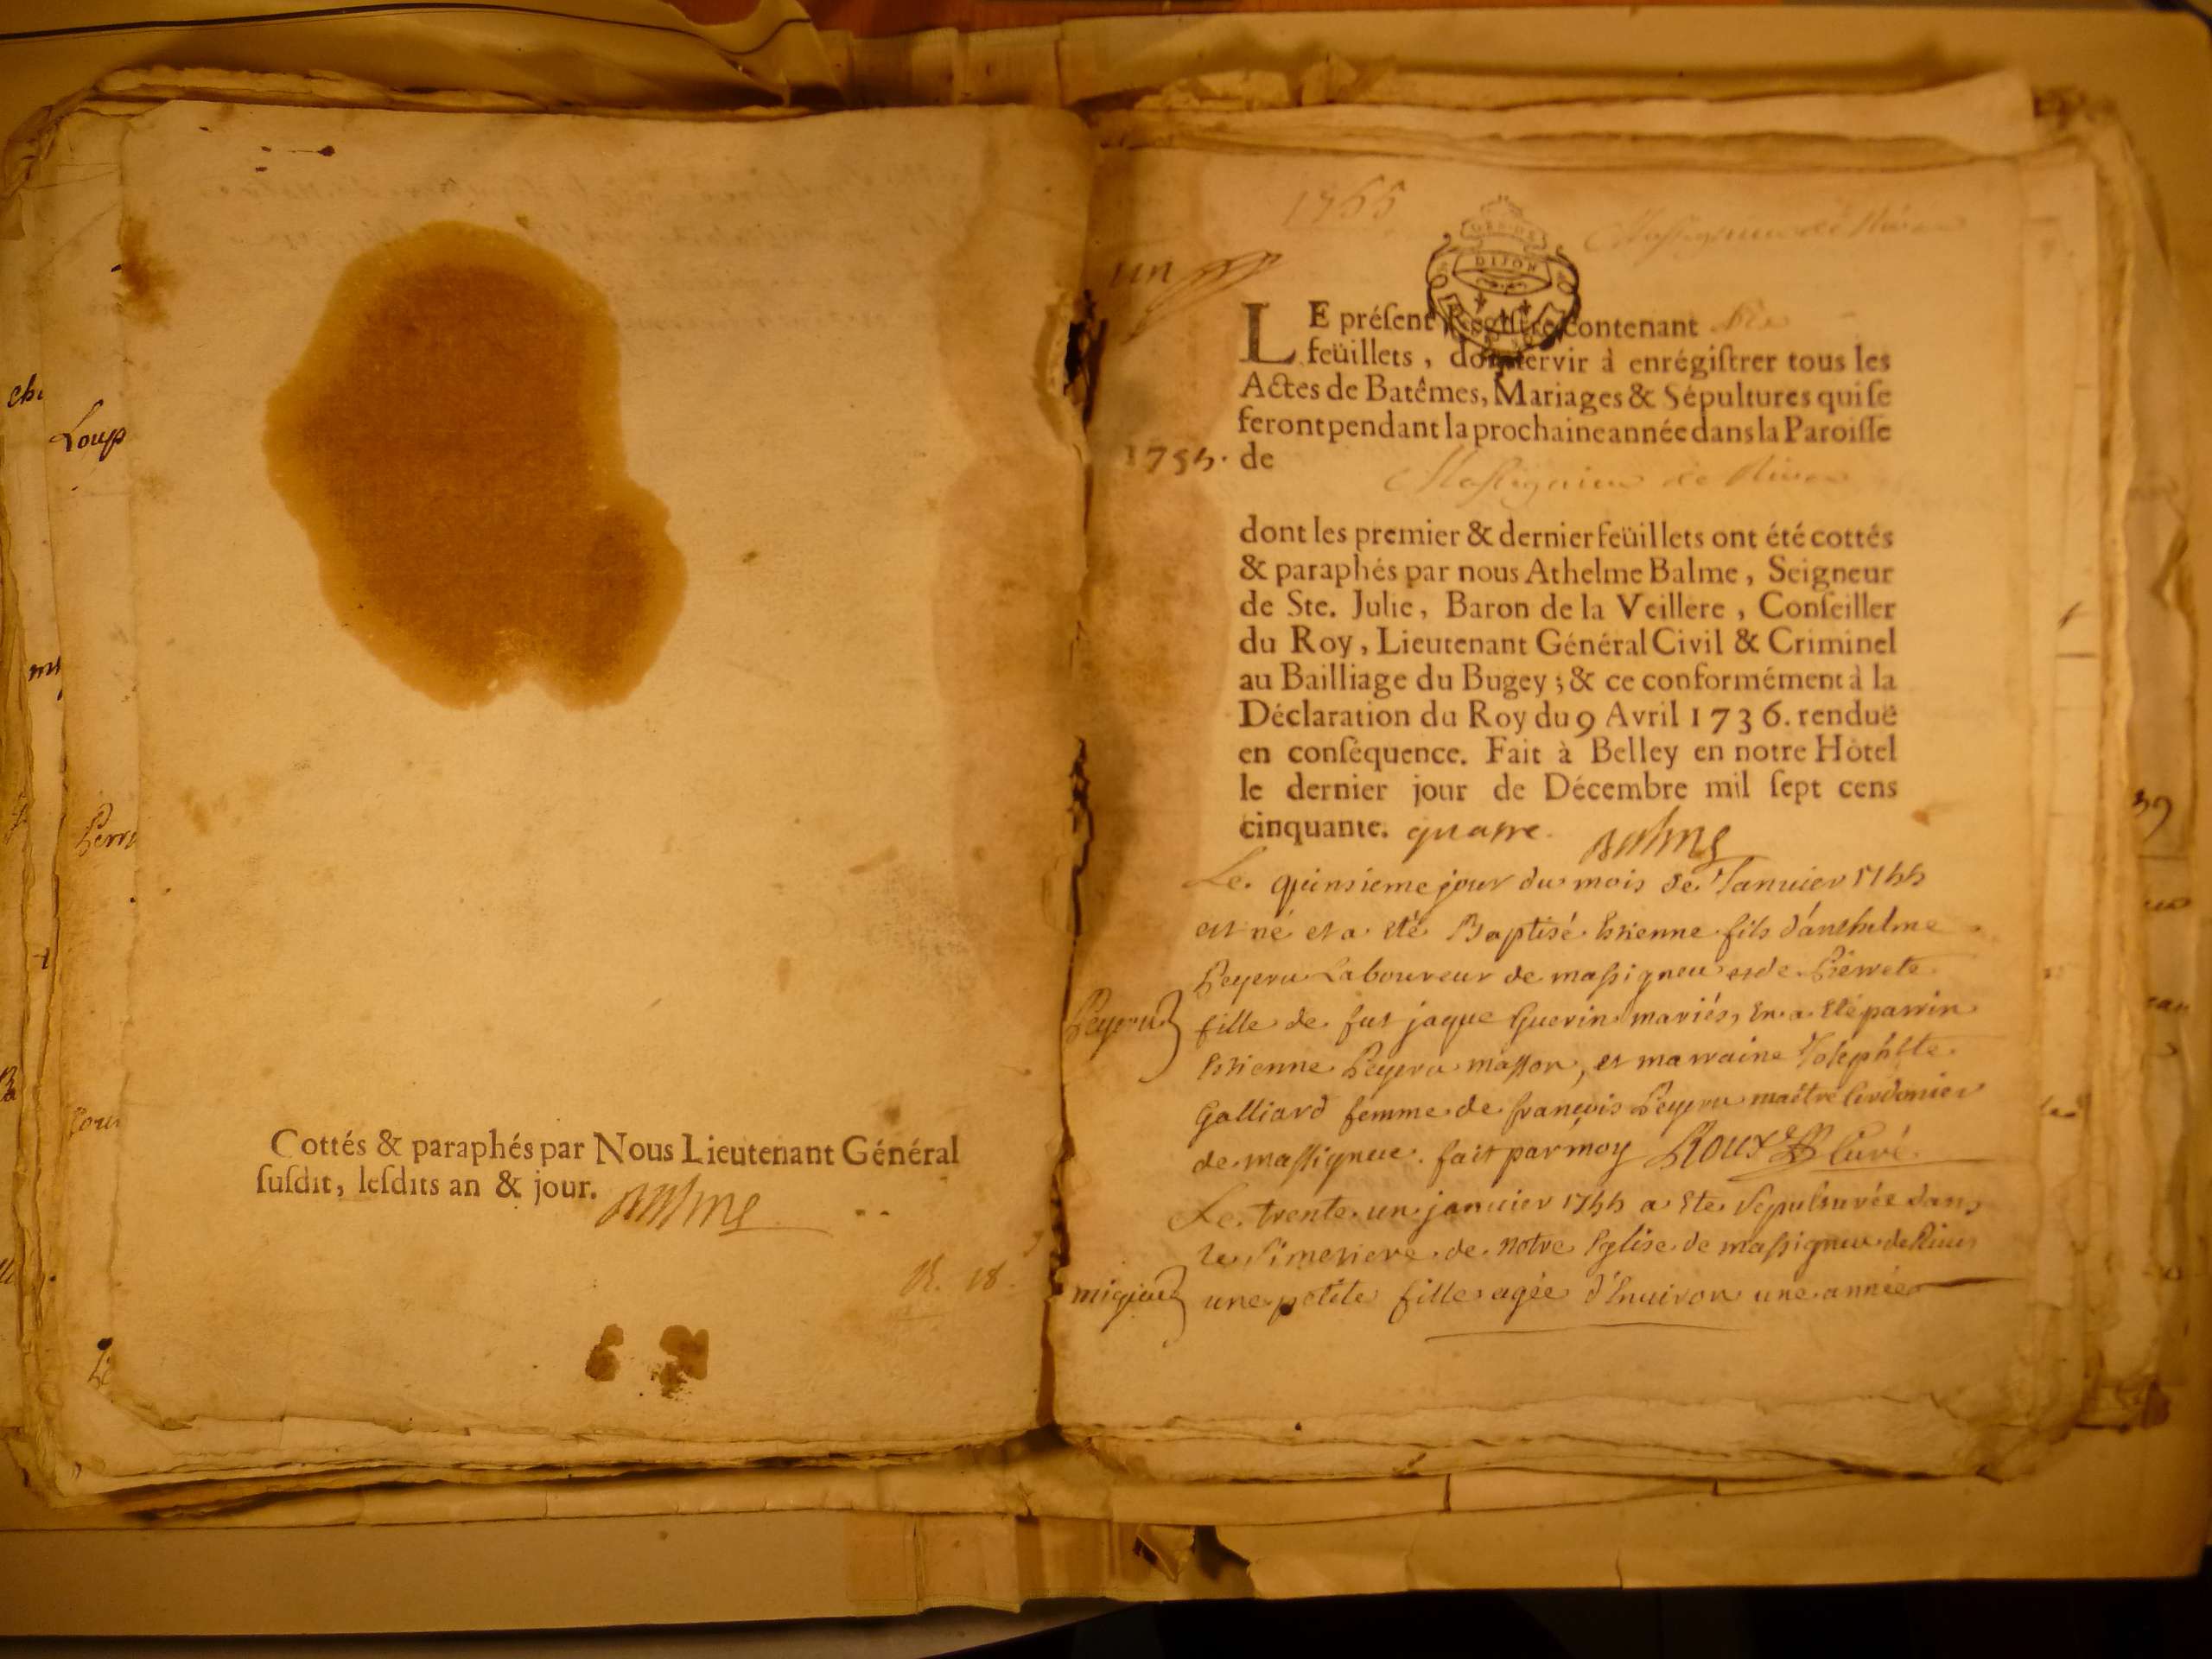 Loup
Cottés & paraphés par Nous Lieutenant Général
susdit, lesdits an & jour. Balme
R. 18.
1755
un
DIJON
LE présent Registre contenant
feüillets, doit servir à enrégistrer tous les
Actes de Batêmes, Mariages & Sépultures qui se
feront pendant la prochaine année dans la Paroisse
1755. de
Massignieu de Rives
dont les premier & dernier feüillets ont été cottés
& paraphés par nous Athelme Balme, Seigneur
de Ste. Julie, Baron de la Veillere, Conseiller
du Roy, Lieutenant Général Civil & Criminel
au Bailliage du Bugey; & ce conformément à la
Déclaration du Roy du 9 Avril 1736. renduë
en conséquence. Fait à Belley en notre Hôtel
le dernier jour de Décembre mil sept cens
cinquante. quatre. Balme
Le quinsieme jour du mois de Janvier 1755
est né et a eté Baptisé Etienne fils d'anthelme
Peyeru Laboureur de massigneu et de Pierrete
Peyeru fille de fut jaque Guerin mariés, En a eté parrin
Etienne Peyeru masson, et marraine Josephtte
Galliard femme de françois Peyeru maître Cordonier
de massigneu. fait par moy Roux Curé.
Le trente un janvier 1755 a ete sepulturée dans
le Simetiere de notre Eglise de massigneu de Rives
une petite fille agée d'Environ une année